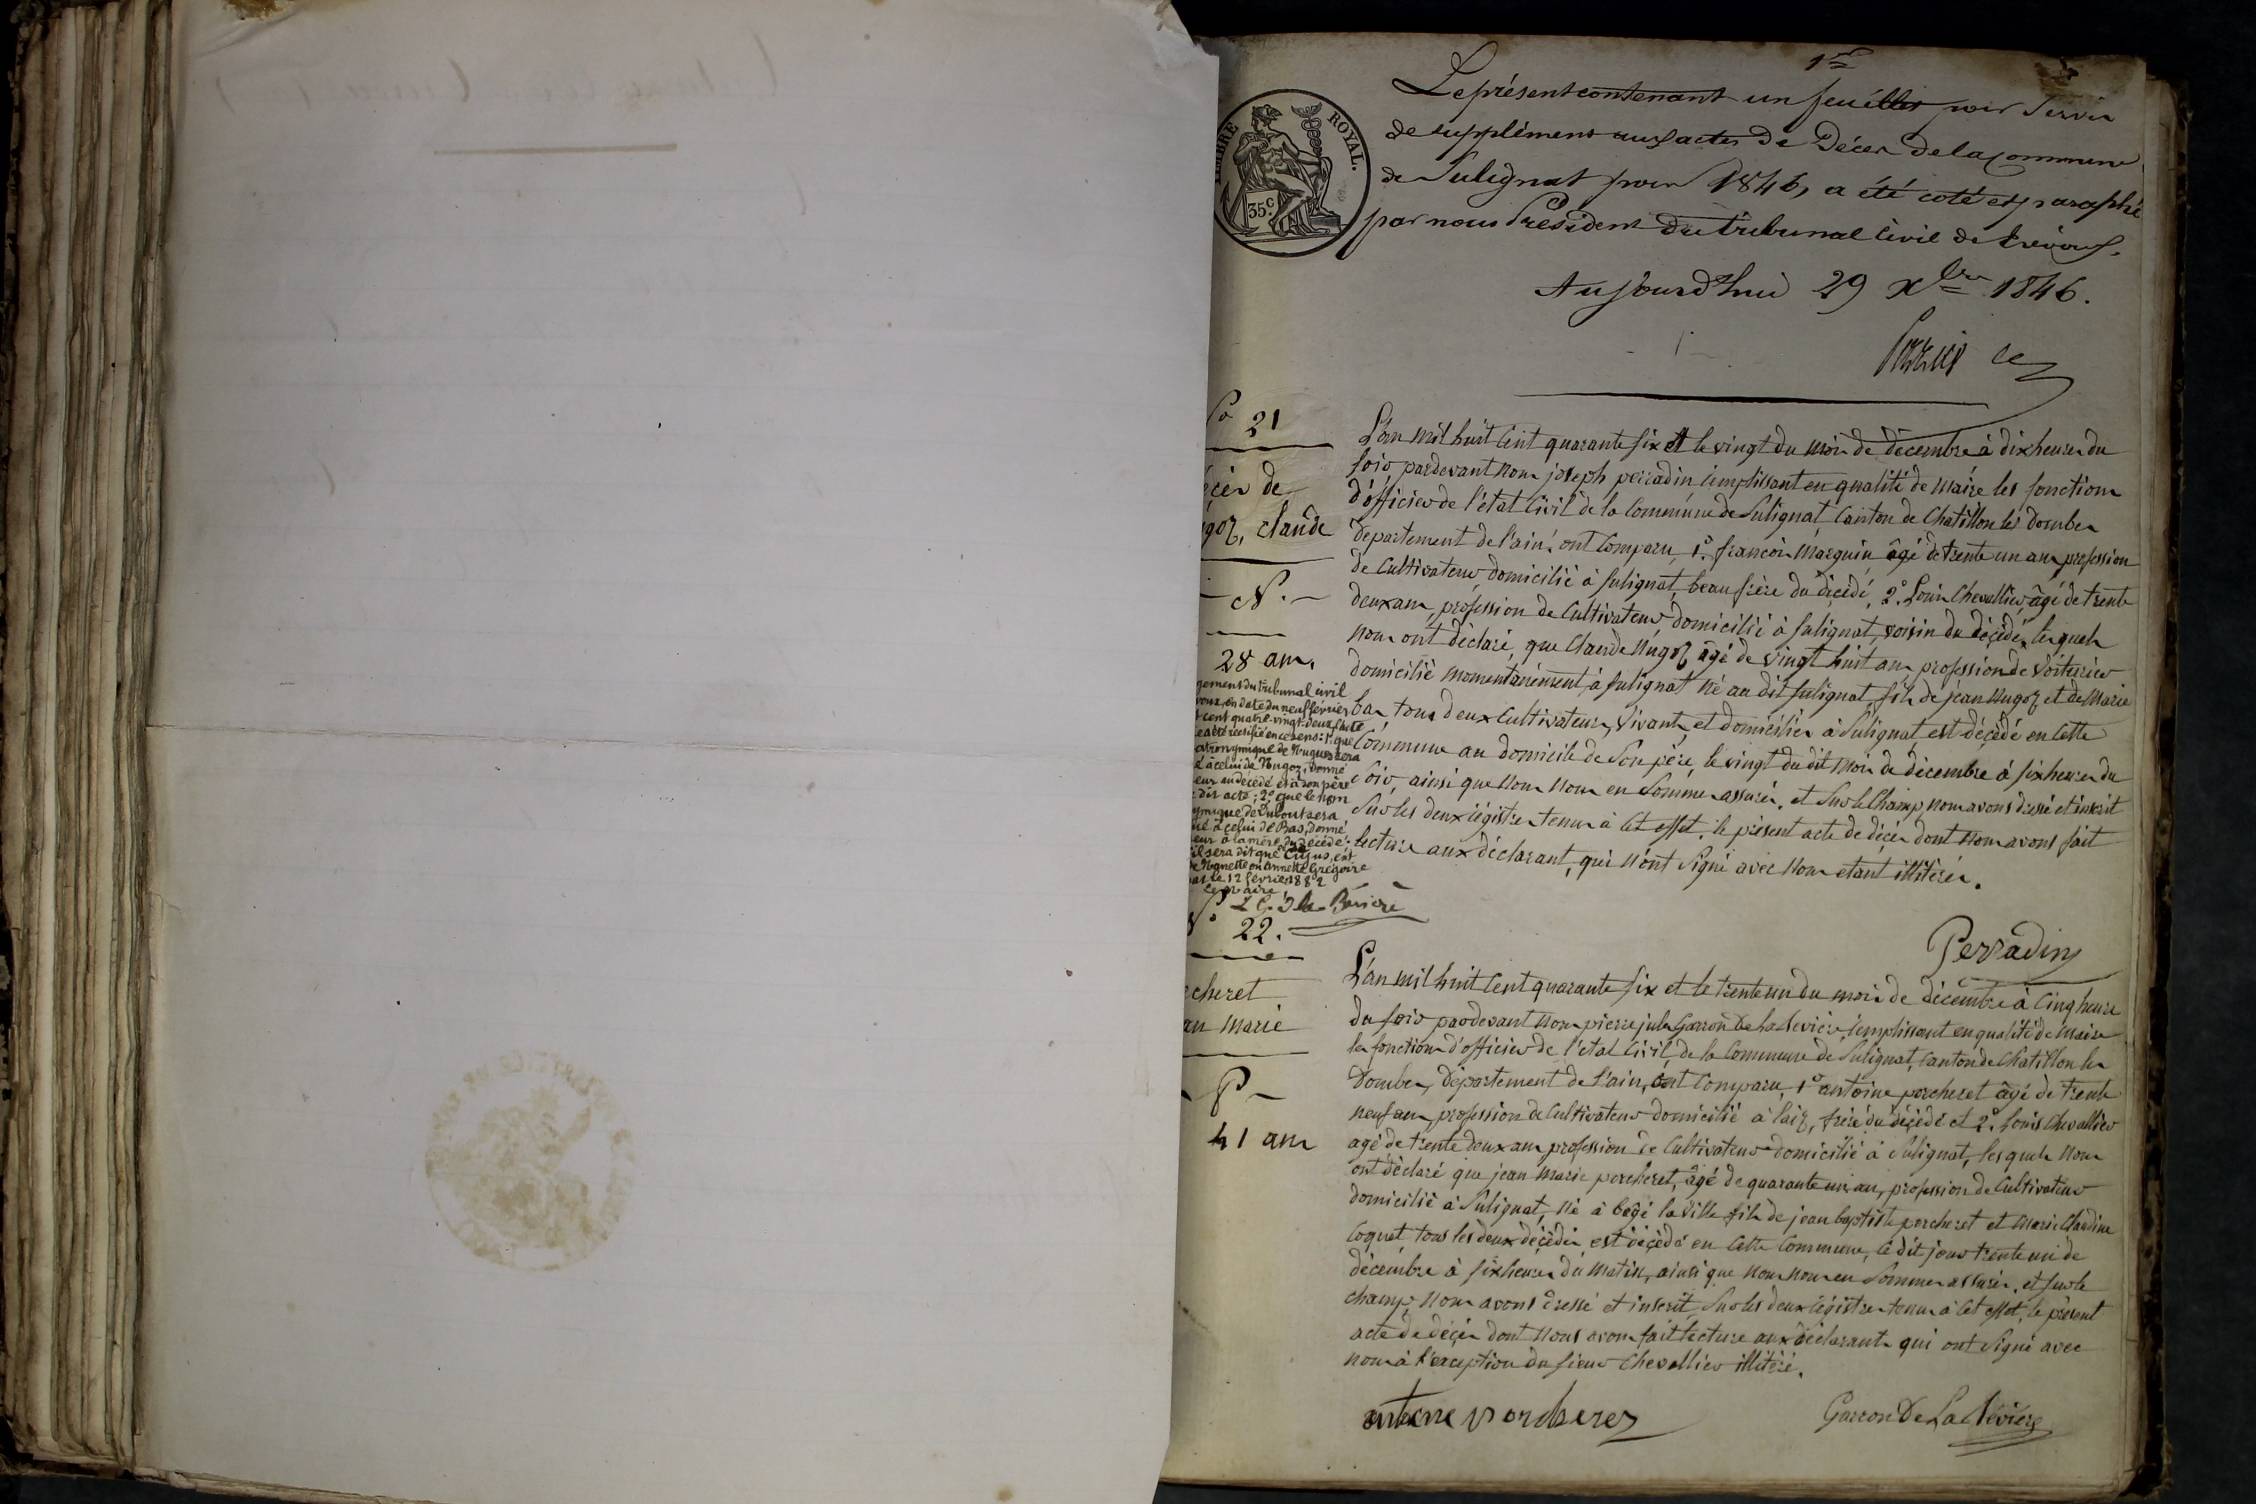 1er
Le présent contenant un feuillet pour servir
de supplément aux actes de Décès de la Commune
de Sulignat pour 1846, a été coté et paraphé
par nous Président du tribunal Civil de Trévoux.
Aujourd'hui 29 Xbre 1846.
TIMBRE ROYAL.
35c
No 21
écès de
ugoz, claude
N.
28 ans.
gement du tribunal civil
voux, en date du neuf février
t cent quatre-vingt-deux, l'acte
e a été rectifié en ce sens: 1° que
atronymique de Nugues sera
é à celui de Nugoz, donné
eur au décédé et à son père
dit acte; 2° que le nom
ymique de Dubout sera
ué à celui de Bas, donné
eur à la mère du décédé;
il sera dit que le Cujus, est
de Nonette ou annette Grégoire
nat le 12 février 1882
Le maire,
L'an mil huit cent quarante six et le vingt du mois de décembre à dix heures du
soir pardevant nous joseph perradin remplissant en qualité de maire les fonctions
d'officier de l'état Civil de la Commune de Sulignat Canton de Chatillon les dombes
departement de l'ain, ont Comparu, 1.° françois Marguin âgé de trente un ans profession
de Cultivateur, domicilié à sulignat, beau frère du décédé, 2.° Louis Chevallier âgé de trente
deux ans, profession de Cultivateur domicilié à sulignat, voisin du décédé, lesquels
nous ont déclaré, que Claude Nugoz âgé de vingt huit ans profession de Voiturier
domicilié momentanément, à sulignat né au dit sulignat, fils de jean Nugoz et de Marie
bas, tous deux Cultivateurs, vivants et domiciliés à Sulignat est décédé en Cette
Commune au domicile de Son père, le vingt du dit mois de décembre à six heures du
Soir, ainsi que nous nous en Sommes assurés, et Sur le Champ nous avons dressé et inscrit
Sur les deux régistres tenus à Cet effet, le présent acte de décès dont nous avons fait
lecture aux déclarant, qui n'ont Signé avec nous etant illitérés.
Perradin
No 22.
rcheret
an marie
P
41 ans
L'an mil huit Cent quarante Six et le trente un du mois de décembre à Cinq heures
du soir pardevant nous pierre jules Garron De la Bévière, remplissant en qualité de Maire
les fonctions d'officier de l'état Civil, de la Commune de Sulignat, Canton de Chatillon les
Dombes, département de l'ain, ont Comparu, 1° antoine porcheret âgé de trente
neuf ans profession de Cultivateur domicilié à laiz, frère du décédé et 2.° Louis Chevallier
agé de trente deux ans profession de Cultivateur domicilié à Sulignat, lesquels nous
ont déclaré que jean Marie porcheret, âgé de quarante un ans, profession de Cultivateur
domicilié à Sulignat, né à bagé la Ville fils de jean baptiste porcheret et Marie Claudine
Coquet, tous les deux décédés, est décédé en Cette Commune, le dit jour trente un de
décembre à six heures du matin, ainsi que nous nous en Sommes assurés, et sur le
champ, nous avons dressé et inscrit, Sur les deux régistres tenus à Cet effet, le présent
acte de décès dont nous avons fait lecture aux déclarants qui ont Signé avec
nous à l'exception du sieur Chevallier illitéré.
antoine porcheret
Garron De La Bévière